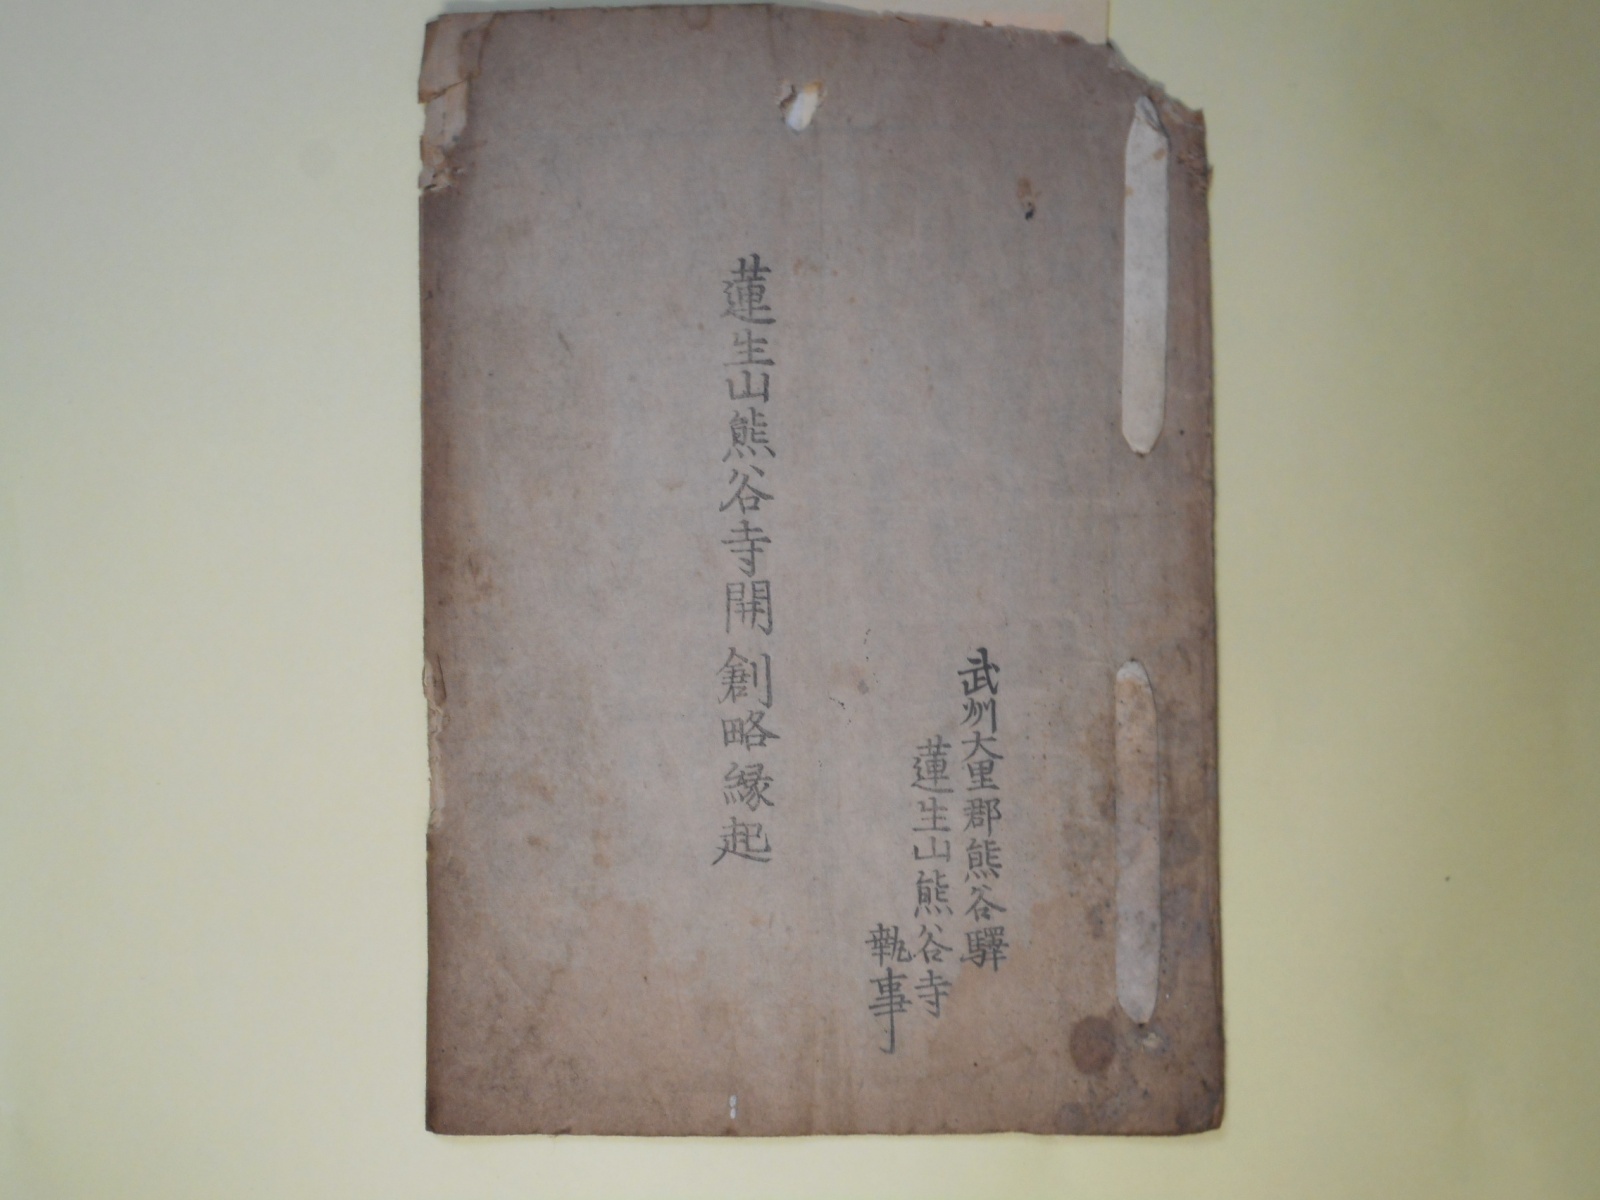 武州大里郡熊谷驛
蓮生山熊谷寺
執事
蓮生山熊谷寺開創略縁起